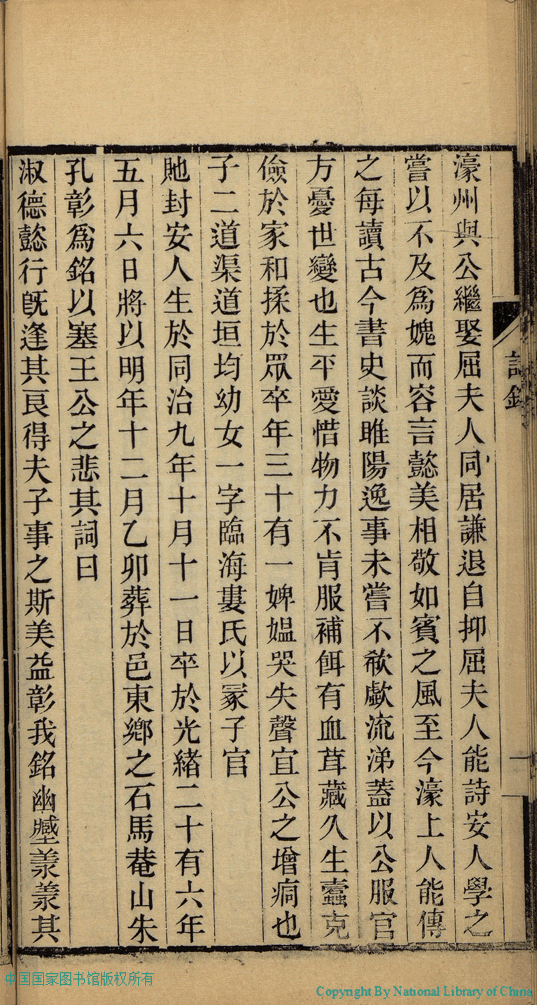 濠州與公繼娶屈夫人同居謙退自抑屈夫人能詩安人學之
嘗以不及爲媿而容言懿美相敬如賓之風至今濠上人能傳
之每讀古今書史談睢陽逸事未嘗不欷歔流涕蓋以公服官
方憂世變也生平愛惜物力不肯服補餌有血茸藏久生蠹克
儉於家和揉於眾卒年三十有一婢媼哭失聲宜公之增痌也
子二道渠道垣均幼女一字臨海婁氏以冢子官
貤封安人生於同治九年十月十一日卒於光緒二十有六年
五月六日將以明年十二月乙卯葬於邑東鄉之石馬菴山朱
孔彰爲銘以塞王公之悲其詞曰
淑德懿行旣逢其良得夫子事之斯美益彰我銘幽壟羕羕其
一
中国国家图书馆版权所有
Copyright By National Library of China